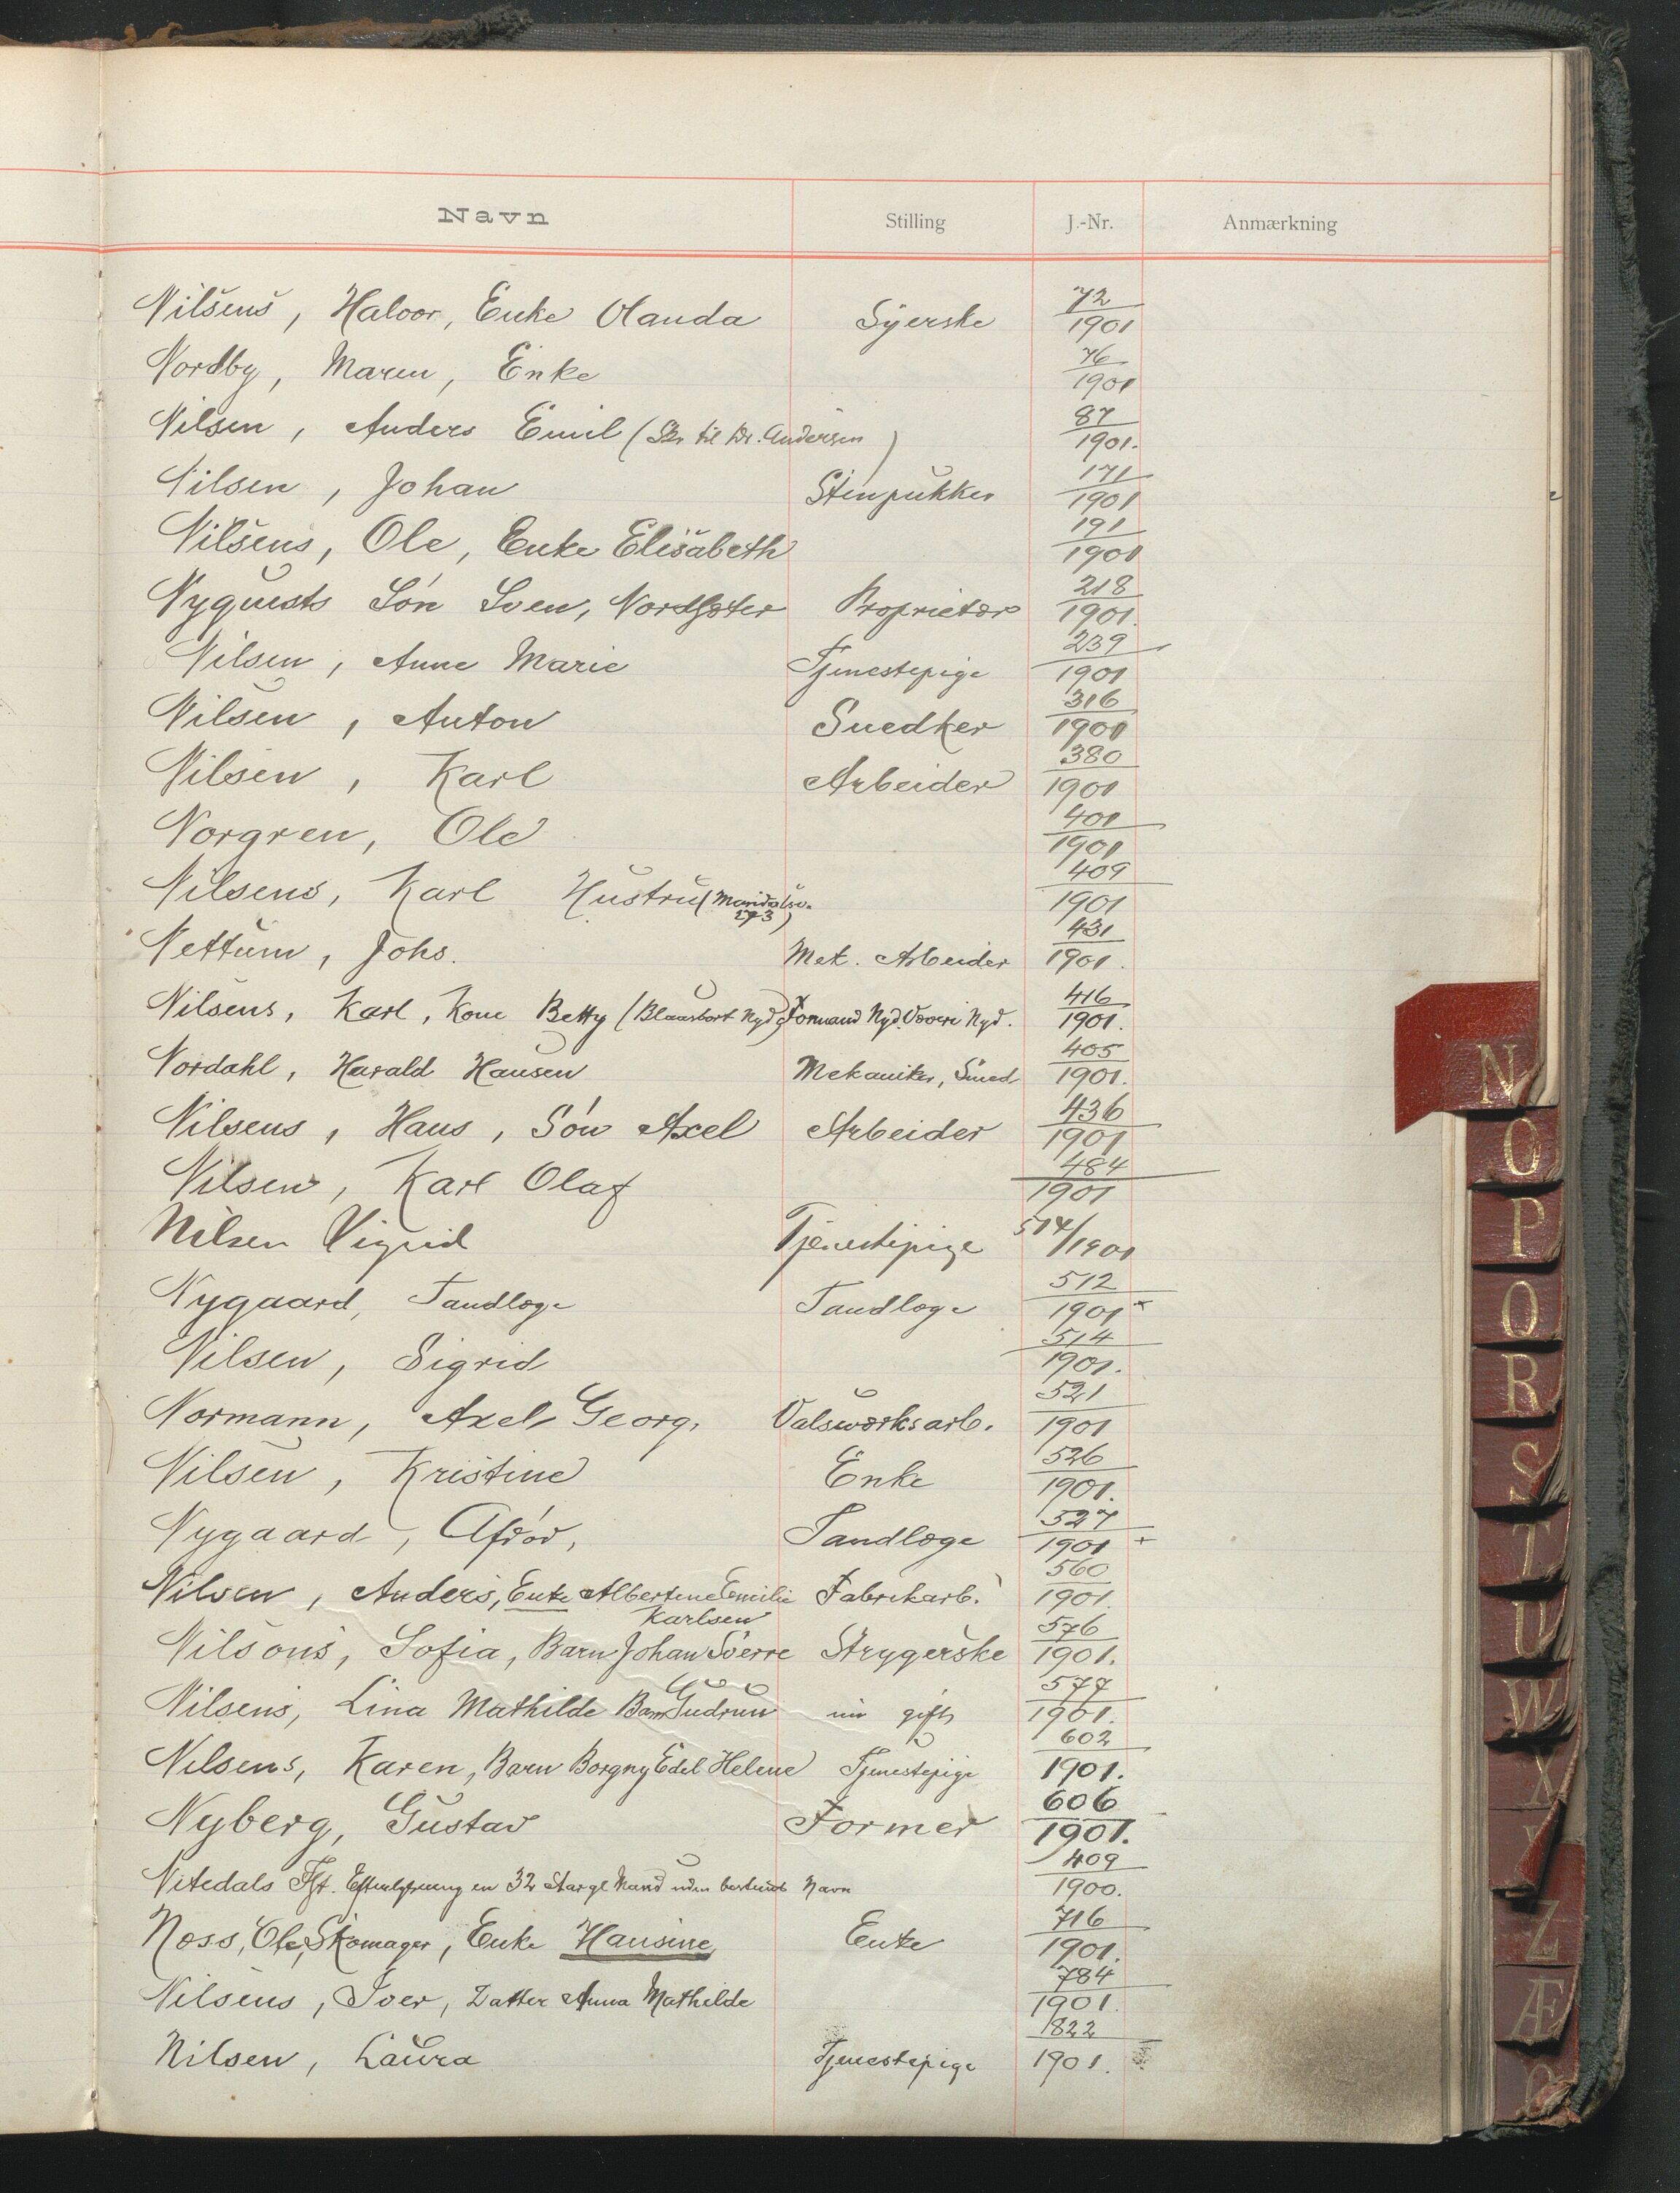 Navn Stilling J.-Nr. Anmærkning
Nilsens, Halvor, Enke Olanda Syerske 72/1901
Nordby, Maren, Enke 76/1901
Nilsen, Anders Emil (Skr til Dr. Andersen) 87/1901.
Nilsen, Johan Stenpukker 171/1901
Nilsens, Ole, Enke Elisabeth 191/1901
Nyquists Søn Sven, Proprietær 218/1901.
Nilsen, Anne Marie Tjenestepige 239/1901
Nilsen, Anton Snedker 316/1901
Nilsen, Karl Arbeider 380/1901
Norgren, Ole 401/1901
Nilsens, Karl Hustru (Maridalsv. 273) 409/1901
Nettum, Johs. Mek. Arbeider 431/1901.
Nilsens, Karl, Kone Betty (Blaasbort Nyd) Formand Nyd. Væveri Nyd. 416/1901.
Nordahl, Harald Hansen Mekaniker, Smed 405/1901.
Nilsens, Hans, Søn Axel Arbeider 436/1901
Nilsen, Karl Olaf 484/1901
Nilsen Sigrid Tjenestepige 514/1901
Nygaard, Tandlæge Tandlæge 512/1901 x
Nilsen, Sigrid 514/1901.
Normann, Axel Georg. Valsværksarb. 521/1901
Nilsen, Kristine Enke 526/1901.
Nygaard, Tandlæge 527/1901 +
Nilsen, Anders, Enke Albertine Emilie Fabrikarb. 560/1901.
Karlsen
Nilsons, Sofia, Barn Johan Sverre Strygerske 576/1901.
Nilsens, Lina Mathilde Barn Gudrun gift 577/1901.
Nilsens, Karen, Barn Borgny Edel Helene Tjenestepige 602/1901.
Nyberg, Gustav Former 606/1901.
Nitedals Efterlysning en 32 Aar gl Mand uden bestemt Navn 409/1900.
Noss, Ole, Skomager, Enke Hansine Enke 716/1901.
Nilsens, Iver, Datter Anna Mathilde 784/1901.
Nilsen, Laura Tjenestepige 1822/1901.
N
O
P
Q
R
S
T
U
W
X
Z
Æ